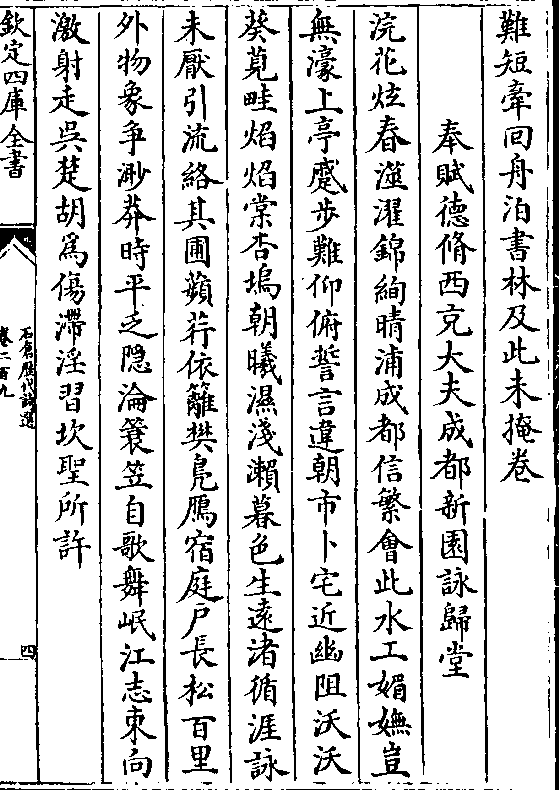 難短牽回舟泊書林及此未掩卷
奉賦德脩西克大夫成都新園詠歸堂
浣花炫春滋濯錦絢晴浦成都信繁會此水工媚嫵豈
無濠上亭蹙步難仰俯誓言違朝市卜宅近幽阻沃沃
葵莧畦焰焰棠杏塢朝曦濕淺瀨暮色生遠渚循涯詠
未厭引流絡其圃蘋荇依籬樊鳧鴈宿庭戶長松百里
外物象爭渺莽時平乏隠淪簑笠自歌舞岷江志東向
激射走吳楚胡爲傷滯淫習坎聖所許
欽定四庫全書
石倉歷代詩選
卷二百九
四